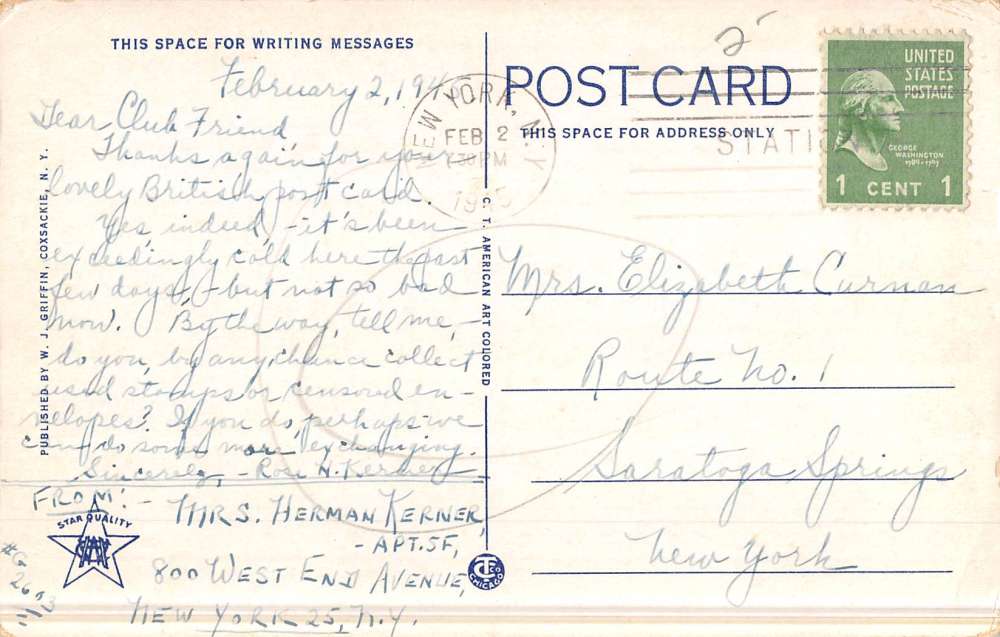 THIS SPACE FOR WRITING MESSAGES
February 2, 194
Dear Club Friend
Thanks again for your
lovely British post card.
Yes, indeed, - it's been
exceedingly cold here the past
few days, - but not so bad
now. By the way, tell me, -
do you, by any chance collect
used stamps or censored en-
velopes? If you do, perhaps we
can do some more exchanging.
Sincerely, - Rose H. Kerner
FROM: -
MRS. HERMAN KERNER,
- APT. 5F,
800 WEST END AVENUE,
NEW YORK 25, N.Y.
STAR QUALITY
#G
2603
PUBLISHED BY W. J. GRIFFIN, COXSACKIE, N. Y.
C. T. AMERICAN ART COLORED
CTCo
CHICAGO
POST CARD
THIS SPACE FOR ADDRESS ONLY
NEW YORK, N.Y.
FEB 2
PM
STATI
UNITED
STATES
POSTAGE
GEORGE
WASHINGTON
1789-1797
1 CENT 1
Mrs. Elizabeth Curnan
Route No. 1
Saratoga Springs
New York